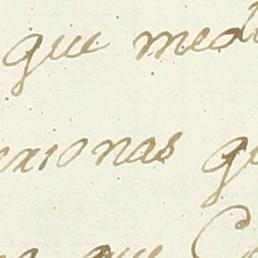 que med
personas q
que C